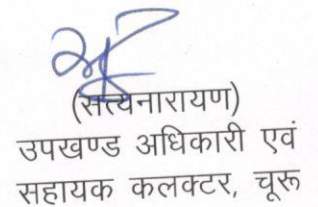 (सत्यनारायण)
उपखण्ड अधिकारी एवं
सहायक कलक्टर, चूरू